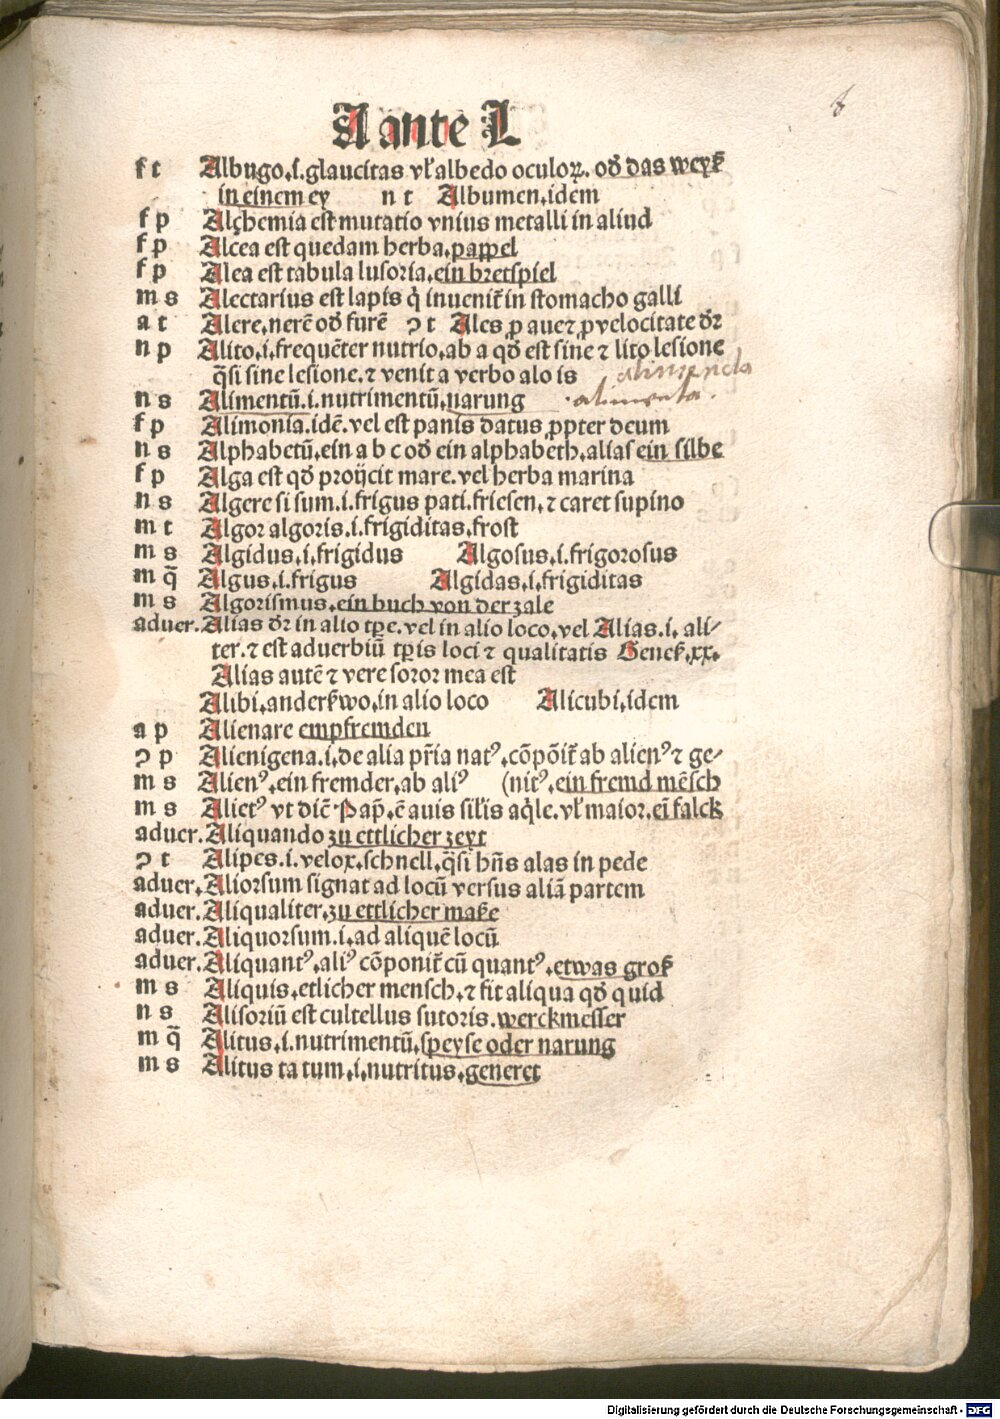 A ante L
f t Albugo.i.glaucitas vł albedo oculoꝝ. oď das weyß
in einem ey n t Albumen.idem
f p Alchemia est mutatio vnius metalli in aliud
f p Alcea est quedam herba.pappel
f p Alea est tabula lusoria.ein bretspiel
m s Alectarius est lapis q̇ inuenit᷑ in stomacho galli
a t Alere.nerē oď furē ꝯ t Ales ꝓ aue ⁊ ꝓ velocitate dr̄
n p Alito.i.frequēter nutrio.ab a qď est sine ⁊ lito lesione
q̄si sine lesione.⁊ venit a verbo alo is alimenta
n s Alimentū.i.nutrimentū.narung alimenta.
f p Alimonia.idē.vel est panis datus ꝓpter deum
n s Alphabetū.ein a b c oď ein alphabeth.alias ein silbe
f p Alga est qď proijcit mare.vel herba marina
n s Algere si sum.i.frigus pati.friesen.⁊ caret supino
m t Algor algoris.i.frigiditas.frost
m s Algidus.i.frigidus Algosus.i.frigorosus
m q̄ Algus.i.frigus Algidas.i.frigiditas
m s Algorismus.ein buch von der zale
aduer. Alias dr̄ in alio tꝑe.vel in alio loco.vel Alias.i. ali⸗
ter.⁊ est aduerbiū tꝑis loci ⁊ qualitatis Geneß.xx.
Alias autē ⁊ vere soror mea est
Alibi.anderßwo.in alio loco Alicubi.idem
a p Alienare empfremden
ꝯ p Alienigena.i.de alia pr̄ia natꝰ.cōpōit᷑ ab alienꝰ ⁊ ge⸗
m s Alienꝰ.ein fremder.ab aliꝰ (nitꝰ.ein fremd mēsch
m s Alietꝰ vt dicē Pap̄.ē auis silis aq̇le.vł maior.eī falck
aduer. Aliquando zu ettlicher zeyt
ꝯ t Alipes.i.velox.schnell.q̄si hn̄s alas in pede
aduer. Aliorsum signat ad locū versus aliā partem
aduer. Aliqualiter.zu ettlicher maße
aduer. Aliquorsum.i.ad aliquē locū
aduer. Aliquantꝰ.aliꝰ cōponit᷑ cū quantꝰ.etwas groß
m s Aliquis.etlicher mensch.⁊ fit aliqua qď quid
n s Alisoriū est cultellus sutoris.werckmesser
m q̄ Alitus.i.nutrimentū.speyse oder narung
m s Alitus ta tum.i.nutritus.generet
Digitalisierung gefördert durch die Deutsche Forschungsgemeinschaft - DFG